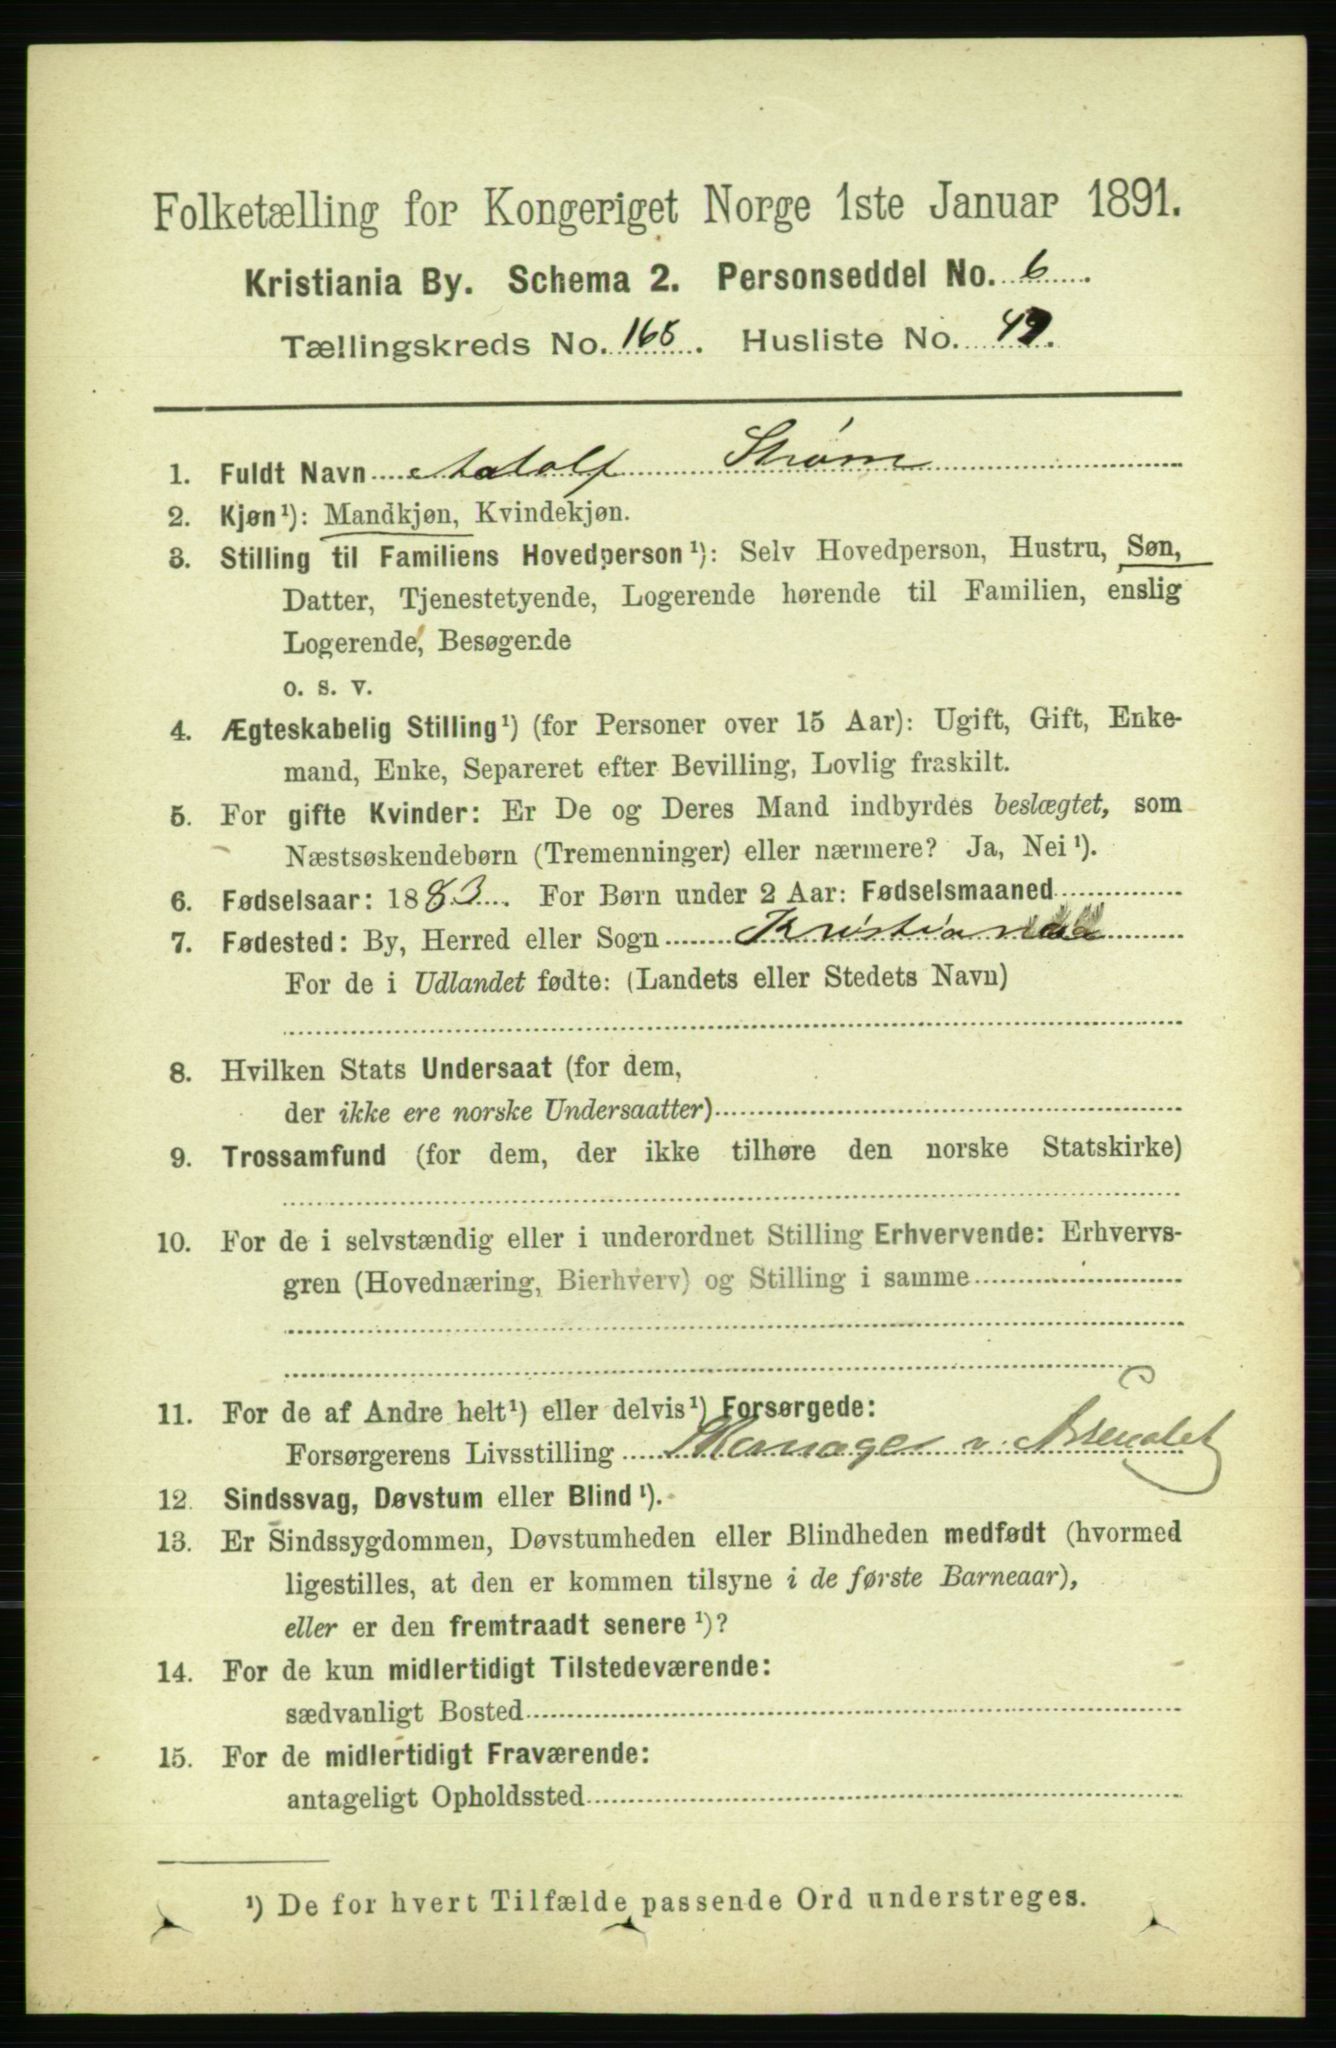 Folketælling for Kongeriget Norge 1ste Januar 1891.
Kristiania By. Schema 2. Personseddel No. 6.
Tællingskreds No. 168. Husliste No. 49.
1. Fuldt Navn Adolf Strøm
2. Kjøn¹): Mandkjøn, Kvindekjøn.
3. Stilling til Familiens Hovedperson¹): Selv Hovedperson, Hustru, Søn,
Datter, Tjenestetyende, Logerende hørende til Familien, enslig
Logerende, Besøgende
o. s. v.
4. Ægteskabelig Stilling¹) (for Personer over 15 Aar): Ugift, Gift, Enke-
mand, Enke, Separeret efter Bevilling, Lovlig fraskilt.
5. For gifte Kvinder: Er De og Deres Mand indbyrdes beslægtet, som
Næstsøskendebørn (Tremenninger) eller nærmere? Ja, Nei¹).
6. Fødselsaar: 1883. For Børn under 2 Aar: Fødselsmaaned
7. Fødested: By, Herred eller Sogn Kristiania
For de i Udlandet fødte: (Landets eller Stedets Navn)
8. Hvilken Stats Undersaat (for dem,
der ikke ere norske Undersaatter)
9. Trossamfund (for dem, der ikke tilhøre den norske Statskirke)
10. For de i selvstændig eller i underordnet Stilling Erhvervende: Erhvervs-
gren (Hovednæring, Bierhverv) og Stilling i samme
11. For de af Andre helt¹) eller delvis¹) Forsørgede:
Forsørgerens Livsstilling v. Arsenalet
12. Sindssvag, Døvstum eller Blind¹).
13. Er Sindssygdommen, Døvstumheden eller Blindheden medfødt (hvormed
ligestilles, at den er kommen tilsyne i de første Barneaar),
eller er den fremtraadt senere¹)?
14. For de kun midlertidigt Tilstedeværende:
sædvanligt Bosted
15. For de midlertidigt Fraværende:
antageligt Opholdssted
¹) De for hvert Tilfælde passende Ord understreges.